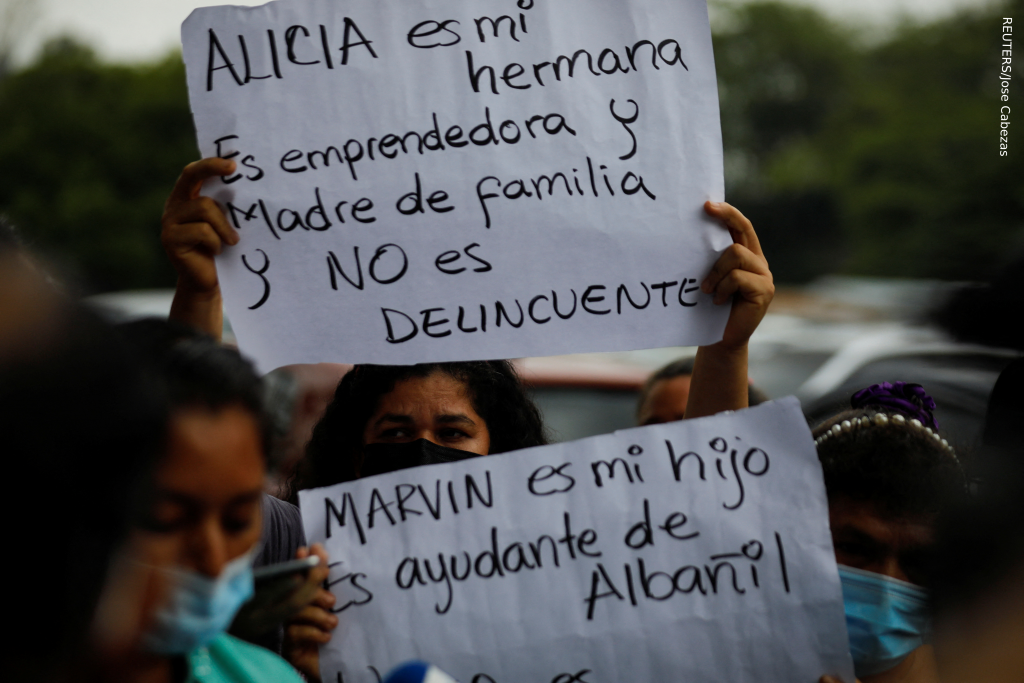 ALICIA es mi
hermana
Es emprendedora y
Madre de familia
y NO es
DELINCUENTE
MARVIN es mi hijo
Es ayudante de
Albañil
es
REUTERS/Jose Cabezas